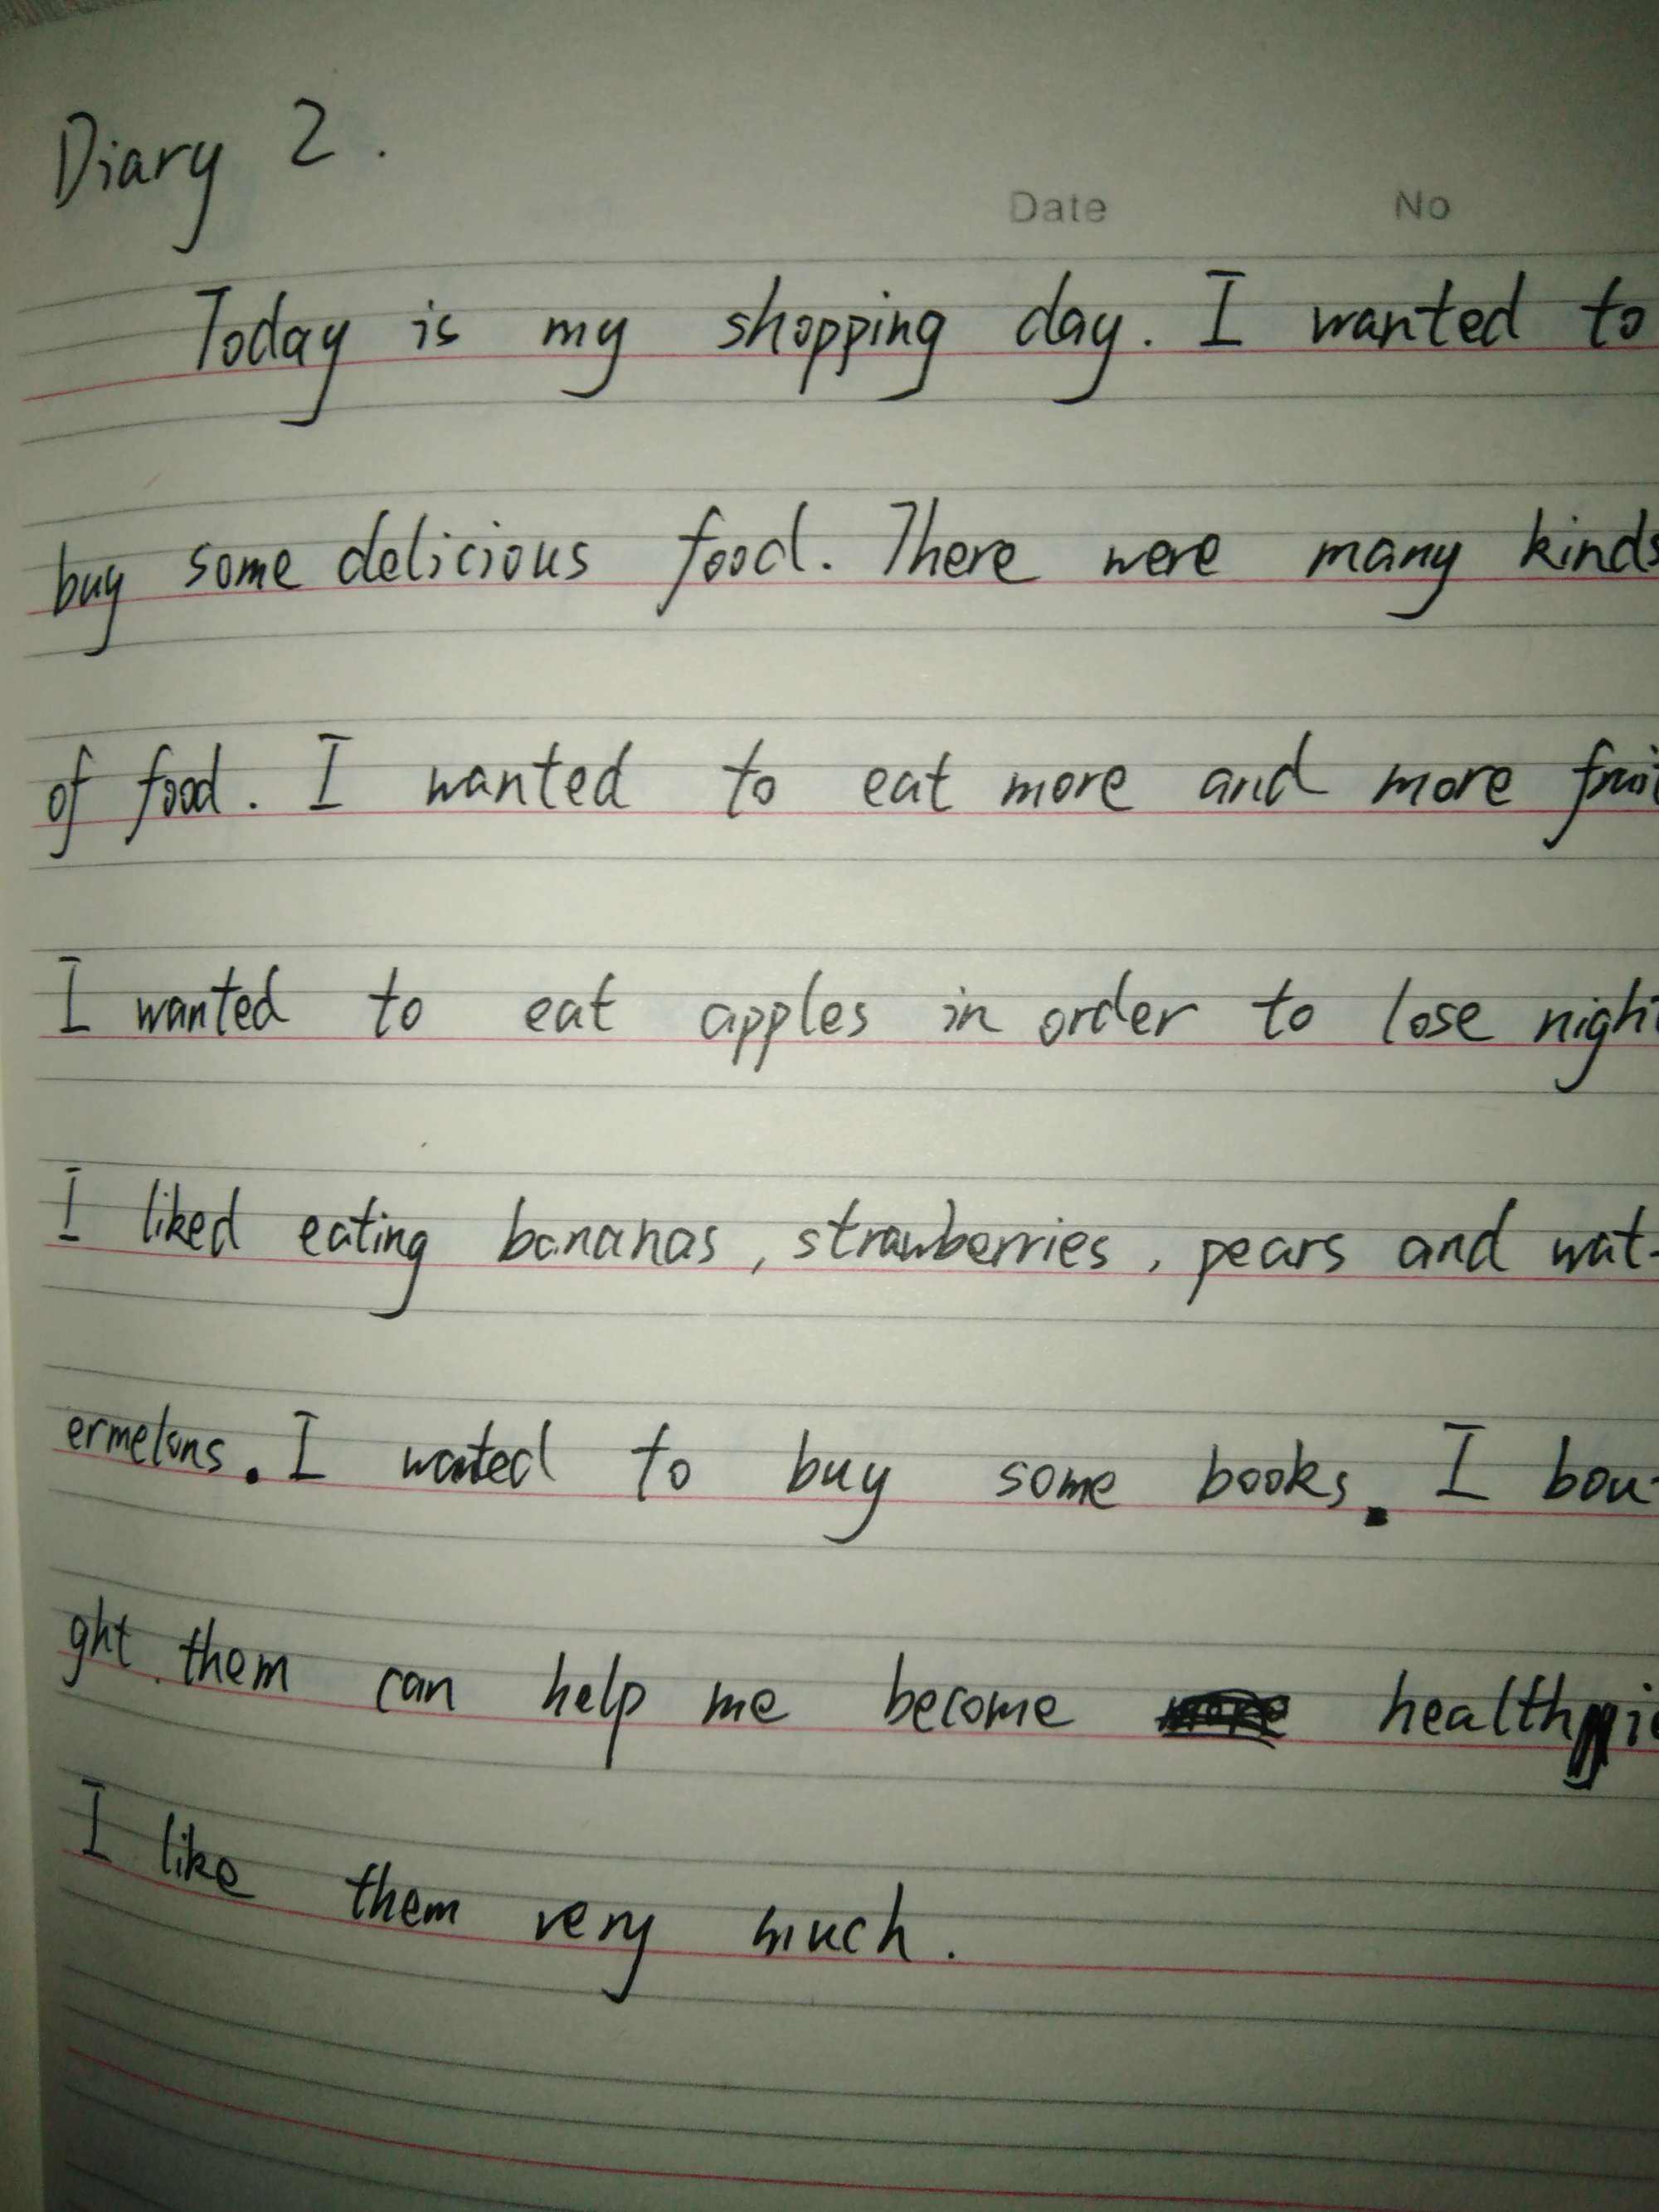 Diary 2.
Date No
Today is my shopping day. I wanted to
buy some delicious food. There were many kinds
of food. I wanted to eat more and more frui
I wanted to eat apples in order to lose nigh
I liked eating bananas, strawberries, pears and wat-
ermelons. I wanted to buy some books. I bou-
ght them can help me become healthi
I like them very much.